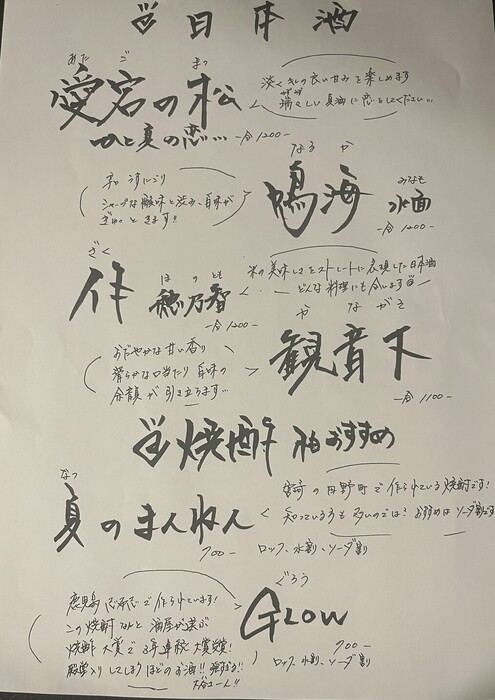 日本酒
あたご まつ
愛宕の松
ひと夏の恋…
一合 1200-
淡くキレの良い甘みを楽しめます
瑞々しい真夏に恋をしてください…
なるか
鳴海
みなも
水面
一合 1200-
うすにごり
シャープな酸味と渋み、旨味が
ぎゅっときます!!
ざく
作
ほのとも
穂乃智
一合 1200-
米の美味しさをストレートに表現した日本酒
どんな料理にも合います
やながせ
観音下
一合 1100-
おだやかな甘い香り
滑らかな口当たり 旨味の
余韻が引き立ちます…
焼酎 おすすめ
なつ
夏のまんねん
700-
ロック、水割、ソーダ割
宮崎の 野町で作られている焼酎です!
知っている方も多いのでは? おすすめはソーダ割です
ぐろう
GLOW
700-
ロック、水割、ソーダ割
鹿児島 志布志で作られています!
この焼酎なんと 酒屋が選ぶ
焼酎大賞で3年連続大賞受賞!
殿堂入りしてしまうほどのお酒!! 強すぎる!!